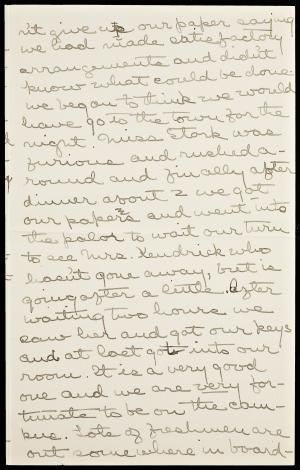 n't give us our paper saying
we had made satisfactory
arrangements and didn't
know what could be done.
we began to think we would
have go to the town for the
night. Miss Stork was
furious and rushed a-
round and finally after
dinner about 2 we got
our papers and went into
the palor to wait our turn
to see Mrs. Kendrick who
hasn't gone away, but is
going after a little. After
waiting two hours we
saw her and got our keys
and at last got into our
room. It is a very good
one and we are very for-
tunate to be on the cam-
pus. Lots of Freshmen are
out somewhere in board-